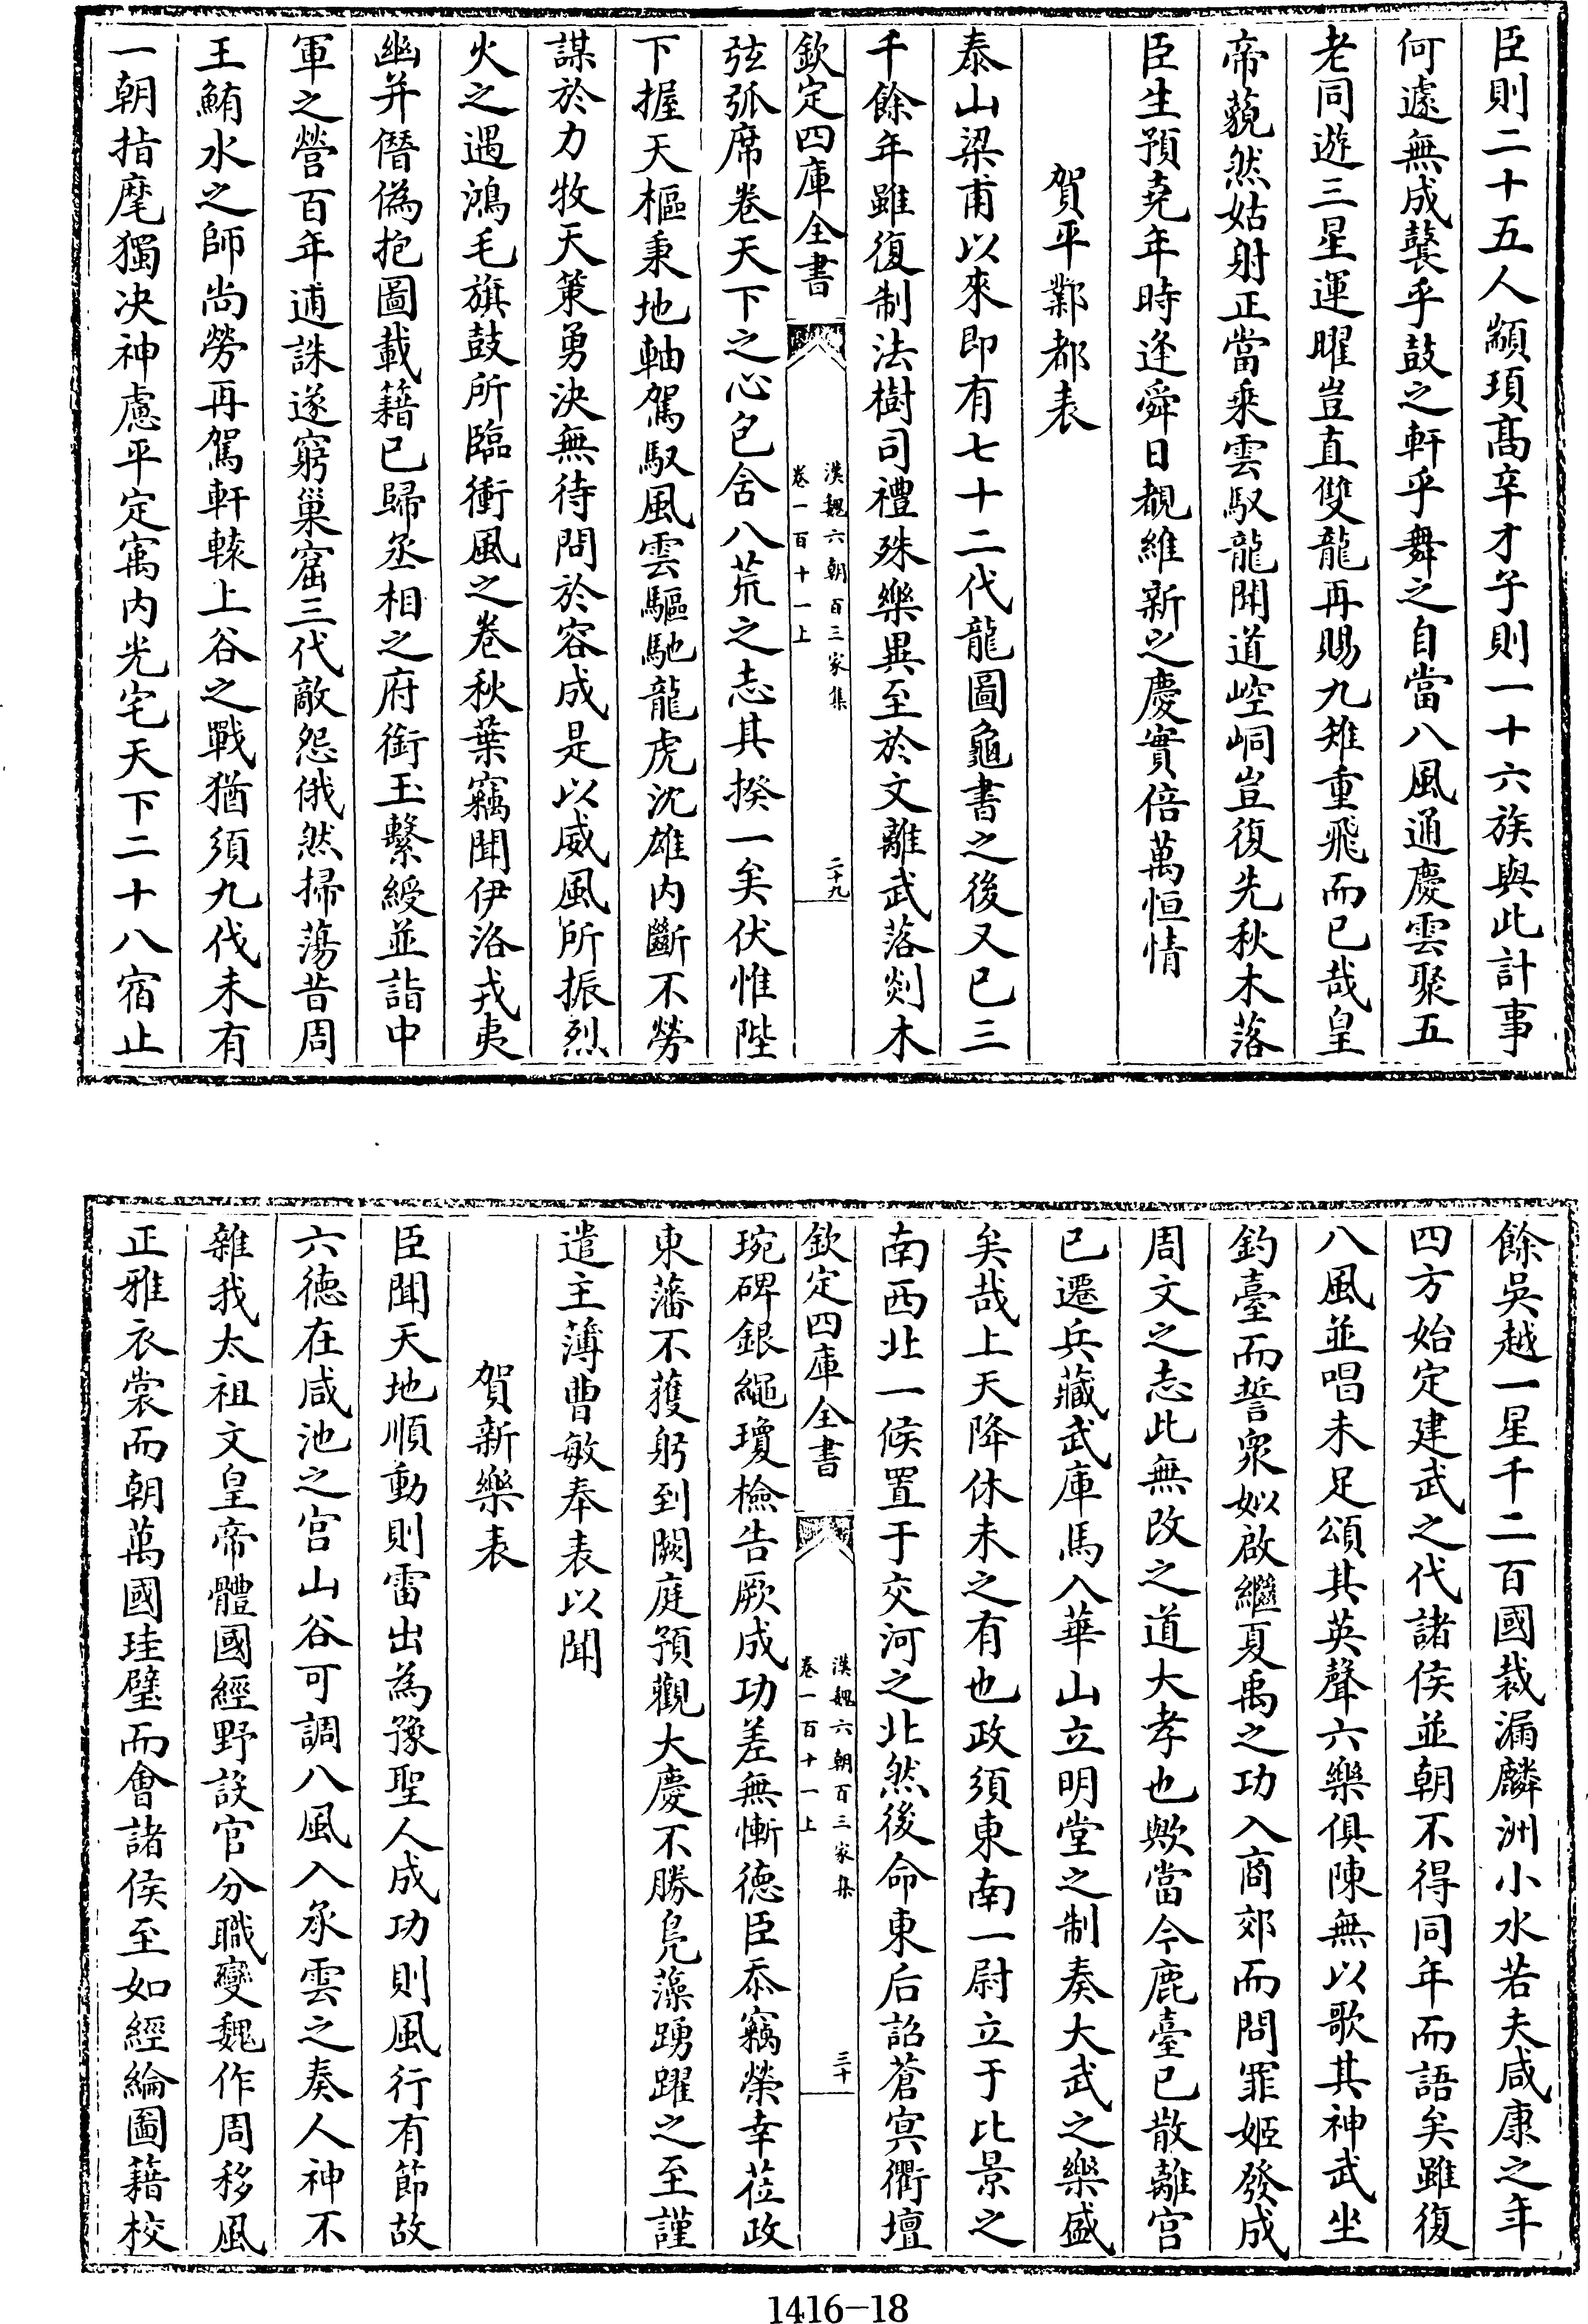 臣則二十五人顓頊髙辛才子則一十六族與此計事
何遽無成蘉乎鼓之軒乎舞之自當八風通慶雲聚五
老同遊三星運曜豈直雙龍再賜九雉重飛而已哉皇
帝藐然姑射正當乘雲馭龍聞道崆峒豈復先秋木落
臣生預堯年時逢舜日覩維新之慶實倍萬恒情
賀平鄴都表
泰山梁甫以來即有七十二代龍圖龜書之後又已三
千餘年雖復制法樹司禮殊樂異至於文離武落剡木
欽定四庫全書
漢魏六朝百三家集
卷一百十一上
二十九
弦弧席卷天下之心包含八荒之志其揆一矣伏惟陛
下握天樞秉地軸駕馭風雲驅馳龍虎沈雄内斷不勞
謀於力牧天策勇決無待問於容成是以威風所振烈
火之遇鴻毛旗鼓所臨衝風之卷秋葉竊聞伊洛戎夷
幽并僭偽抱圖載籍已歸丞相之府銜玉繫綬並詣中
軍之營百年逋誅遂窮巢窟三代敵怨俄然掃蕩昔周
王鮪水之師尚勞再駕軒轅上谷之戰猶須九伐未有
一朝指麾獨決神慮平定寓内光宅天下二十八宿止
餘吳越一星千二百國裁漏麟洲小水若夫咸康之年
四方始定建武之代諸侯並朝不得同年而語矣雖復
八風並唱未足頌其英聲六樂俱陳無以歌其神武坐
鈞臺而誓眾姒啟繼夏禹之功入商郊而問罪姬發成
周文之志此無改之道大孝也歟當今鹿臺已散離宮
已遷兵藏武庫馬入華山立明堂之制奏大武之樂盛
矣哉上天降休未之有也政須東南一尉立于比景之
南西北一候置于交河之北然後命東后詔蒼冥衢壇
欽定四庫全書
漢魏六朝百三家集
卷一百十一上
三十
琬碑銀繩瓊檢告厥成功差無慚德臣忝竊榮幸莅政
東藩不獲躬到闕庭預觀大慶不勝鳧藻踴躍之至謹
遣主薄曹敏奉表以聞
賀新樂表
臣聞天地順動則雷出為豫聖人成功則風行有節故
六德在咸池之宮山谷可調八風入承雲之奏人神不
雜我太祖文皇帝體國經野設官分職變魏作周移風
正雅衣裳而朝萬國珪璧而會諸侯至如經綸圖籍校
1416-18